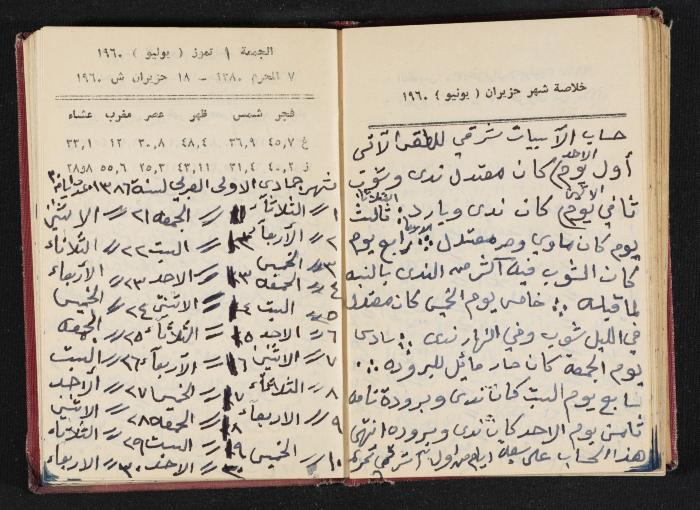 خلاصة شهر حزيران ( يونيو ) ١٩٦٠
حساب الأبيات شرقي للطقس الآتي
الاحد
أول يوم كان معتدل ندى وشوب
الاثنين
ثاني يوم كان ندى وبارد : ثالث
الثلاثاء
يوم كان ماوي وحر معتدل : رابع يوم
كان الشوب فيه أكثر من الندى بالنسبه
لما قبله : خامس يوم الخميس كان معتدل
في الليل شوب وفي النهار ندى : سادس
يوم الجمعة كان حار مائل للبروده :
سابع يوم السبت كان ندى وبرودة تامه
ثامن يوم الاحد كان ندى وبروده انتهى
هذا الحساب على سبعة ايام من اول شرقي
الجمعة ١ تموز ( يوليو ) ١٩٦٠
٧ المحرم ١٣٨٠ — ١٨ حزيران ش ١٩٦٠
فجر شمس ظهر عصر مغرب عشاء
غ ٤٥,٧ ٣٦,٩ ٤٨,٤ ٣٠,٨ ١٢ ٣٣,١
ز ٤٠,٢ ٣١,٤ ٤٣,١١ ٢٥,٣ ٥٥,٦ ٢٨,٨
شهر جمادى الاولى العربي لسنة ١٣٨٦ عدد ايام ٣٠
١ // الثلاثاء ١١ // الجمعه ٢١ // الاثنين
٢ // الأربعاء ١٢ // السبت ٢٢ // الثلاثاء
٣ // الخميس ١٣ // الاحد ٢٣ // الأربعاء
٤ // الجمعه ١٤ // الاثنين ٢٤ // الخميس
٥ // السبت ١٥ // الثلاثاء ٢٥ // الجمعه
٦ // الاحد ١٦ // الأربعاء ٢٦ // السبت
٧ // الاثنين ١٧ // الخميس ٢٧ // الأحد
٨ // الثلاثاء ١٨ // الجمعه ٢٨ // الاثنين
٩ // الاربعاء ١٩ // السبت ٢٩ // الثلاثاء
١٠ // الخميس ٢٠ // الاحد ٣٠ // الاربعاء